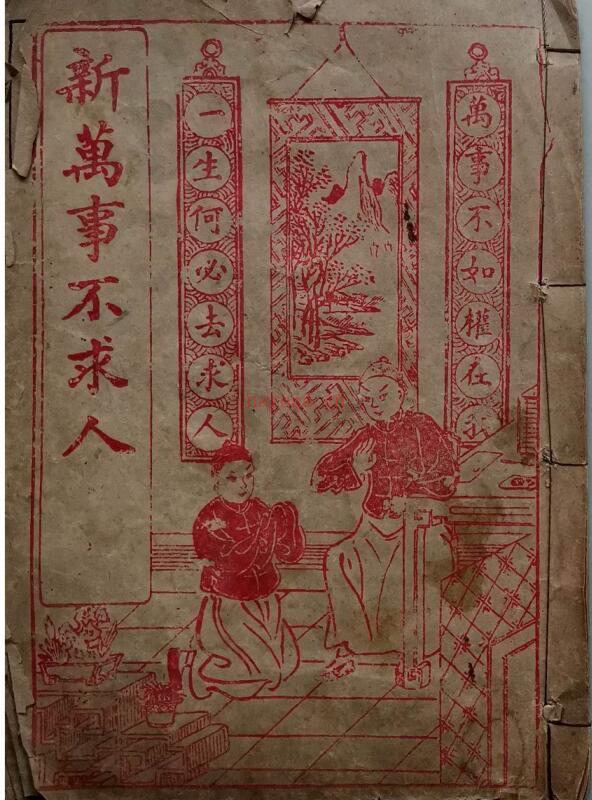 萬事不如權在我
一生何必去求人
新萬事不求人